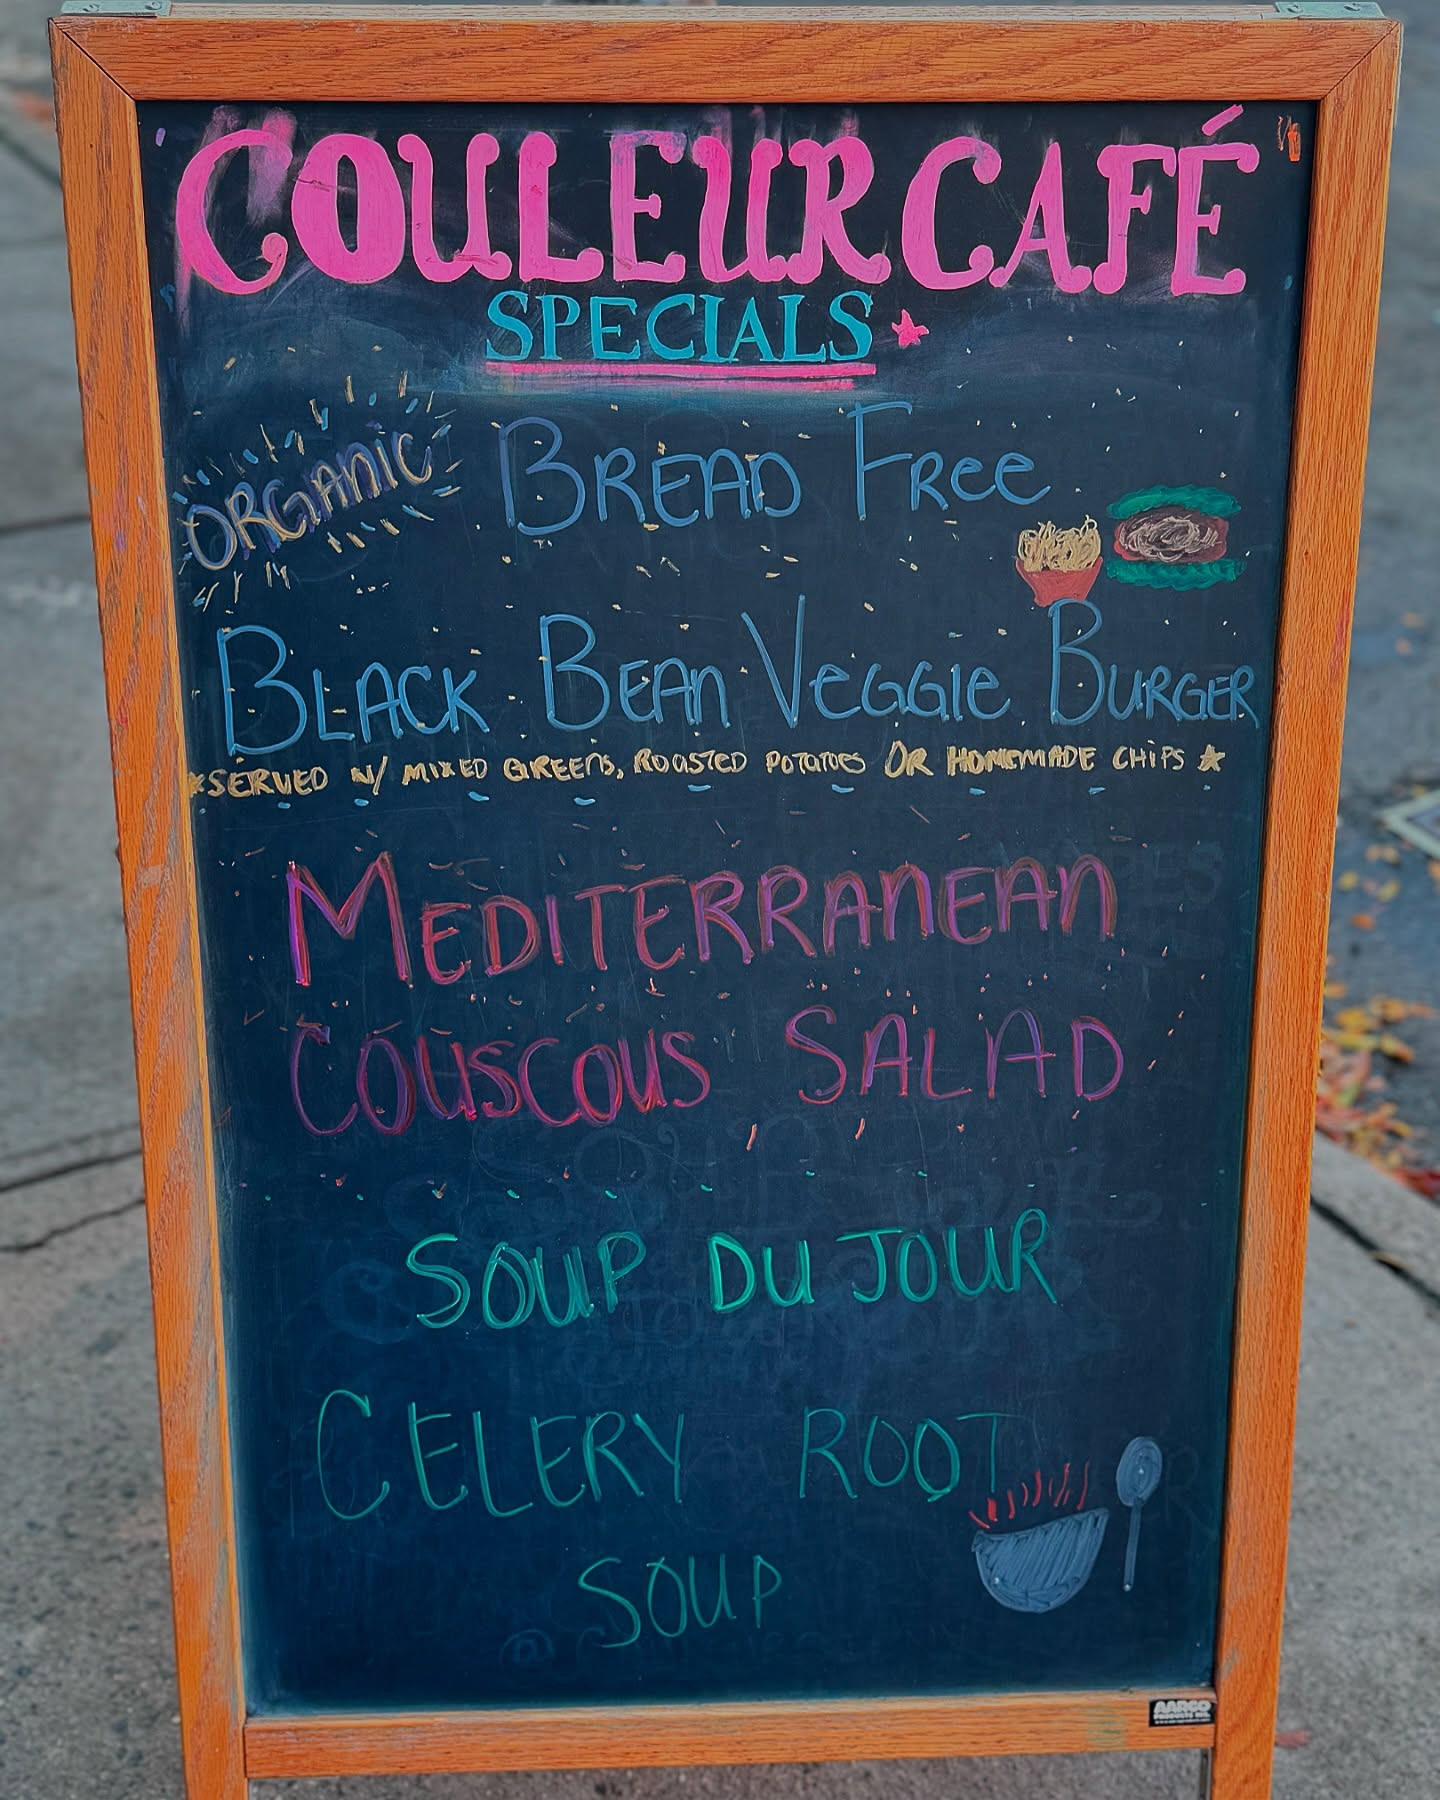 COULEUR CAFÉ
SPECIALS
ORGANIC BREAD FRee
BLACK BEAN VeGGIe BURGER
*SERVED W/ MIXED GREENS, ROASTED POTATOES OR HOMEMADE CHIPS *
MEDITERRANEAN
COUSCOUS SALAD
SOUP DU JOUR
CELERY ROOT
SOUP
AARCO